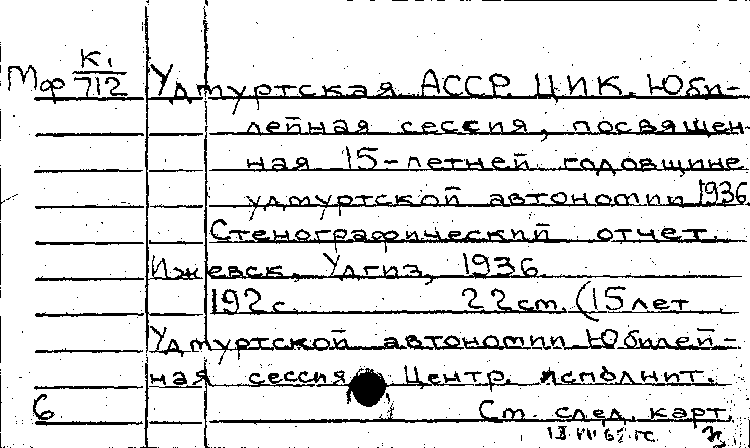 Мф К1/712 Удмуртская АССР. ЦИК. Юби-
лейная сессия, посвящен-
ная 15-летней годовщине
удмуртской автономии 1936
Стенографический отчет.
Ижевск, Удгиз, 1936.
192 с. 22 см. (15 лет
Удмуртской автономии Юбилей-
ная сессия Центр. исполнит.
6 См. след. карт.